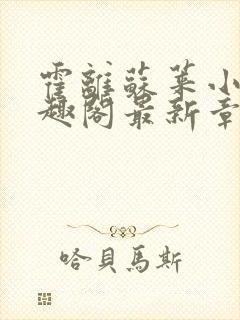 霍離蘇葉小
趣閣最新章
哈貝馬斯